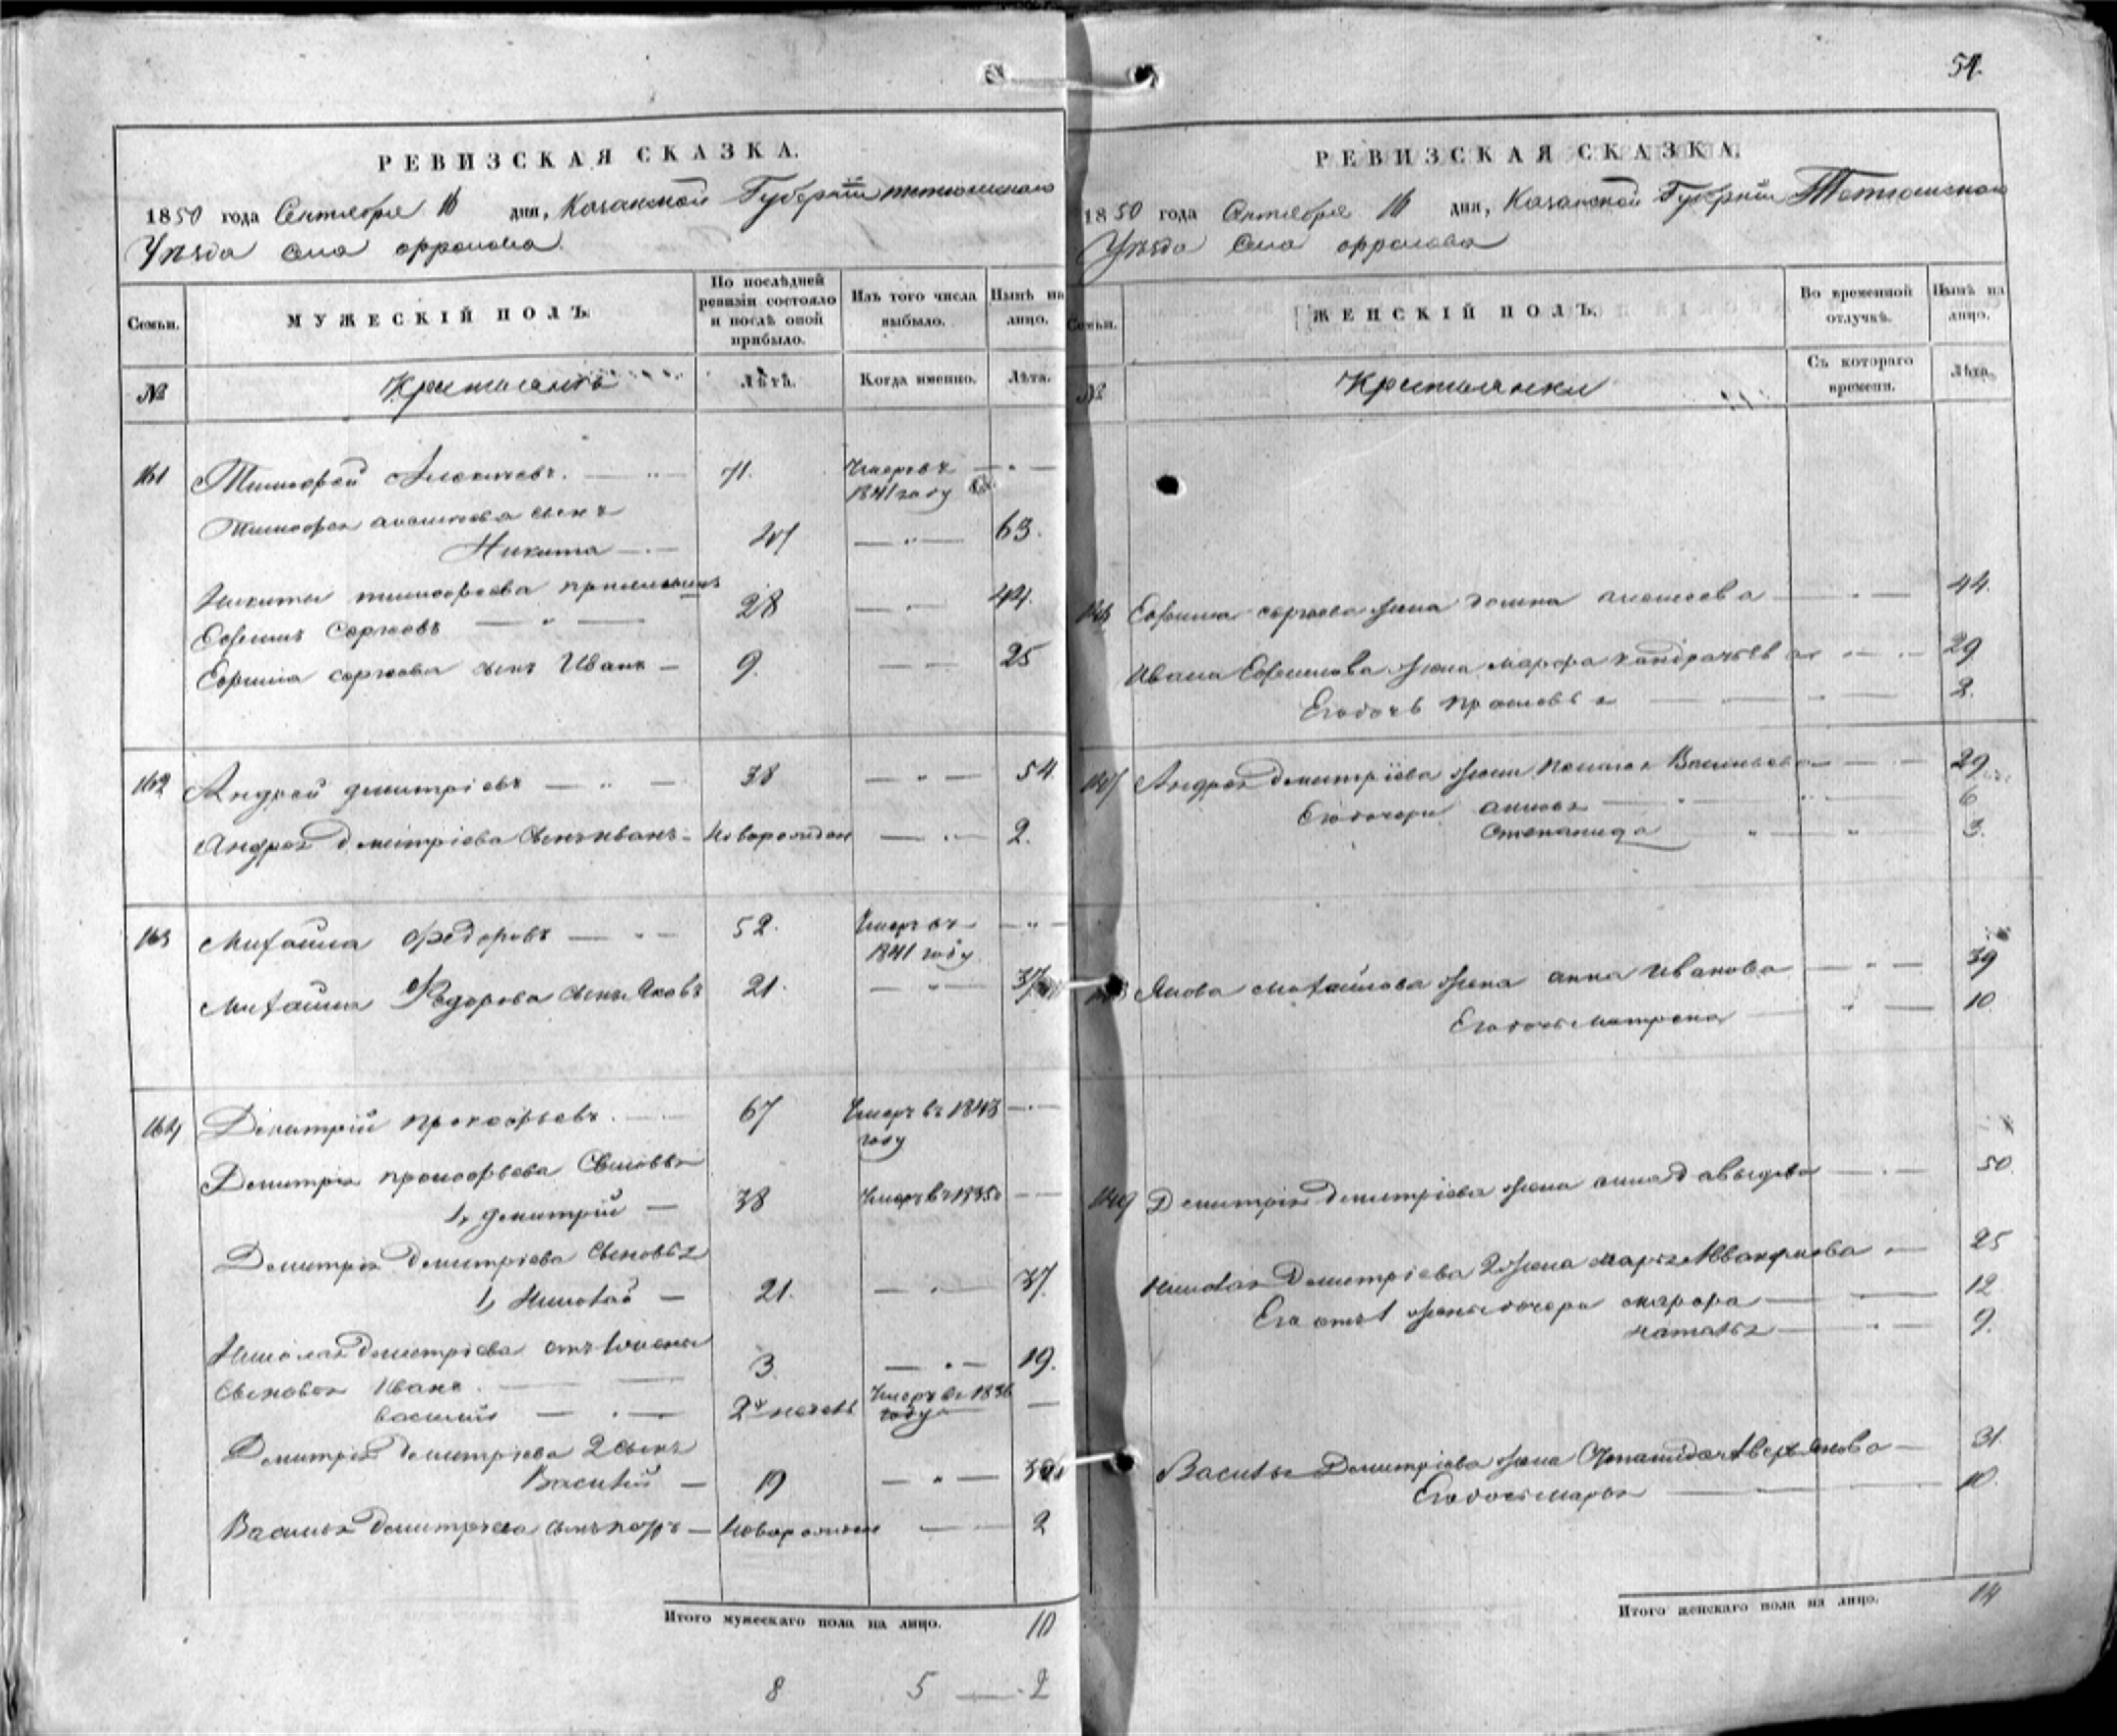 РЕВИЗСКАЯ СКАЗКА.
1850 года Сентября 16 дня, Казанской Губерніи тетюшскаго
Уѣзда села
Семьи.
МУЖЕСКІЙ ПОЛЪ.
По послѣдней ревизіи состояло и послѣ оной прибыло.
Изъ того числа выбыло.
Нынѣ на лицо.
№
Лѣтъ.
Когда именно.
Лѣта.
161 Тимофей 71. Умеръ въ
1841 году
Тимофея сынъ
Никита 47 63.
Никиты тимофеева
Ефимъ Сергеевъ 28 44.
Ефима сергеева сынъ Иванъ 9. 25
162 Андрей дмитріевъ 38 54.
Андрея Дмитріева сынъ иванъ новорожден 2.
163 Михайла Федоровъ 52. Умеръ въ
1841 году
Михайла Федорова сынъ Яковъ 21. 37
164 Дмитрій прокофьевъ. 67 Умеръ въ 1843
году
Дмитрія прокофьева Сыновья
1, дмитрій 38 Умеръ въ 1835
Дмитрія Дмитріева Сыновья
1, Николай 21. 37.
Николая Дмитріева отъ 1 жены
Сыновья Иванъ. 3. 19.
василий 2х недель Умеръ въ 1836
году
Дмитрія дмитріева 2 сынъ
Василій 19
Василья Дмитріева сынъ петръ новорожден 2
Итого мужескаго пола на лицо. 10
8 5 2
54.
РЕВИЗСКАЯ СКАЗКА.
1850 года Сентября 16 дня, Казанской Губерніи Тетюшскаго
Уѣзда села
Семьи.
ЖЕНСКІЙ ПОЛЪ.
Во временной отлучкѣ.
Нынѣ на лицо.
№
Крестьянки
Съ котораго времени.
Лѣта.
Ефима сергеева жена 44.
Ивана Ефимова жена марфа кондратьева 29
Его дочь прасковья 2.
Андрея дмитріева жена Васильева 29
Его дочери 6
Степанида 3.
Якова михайлова жена анна Иванова 39
Его дочь матрена 10
Дмитрія дмитріева жена анна давыдова 50.
Николая Дмитріева 2 жена марья 25
Его отъ 1 жены дочери 12
наталья 9.
Василья Дмитріева жена Степанида Аверьянова 31.
Его дочь марья 10.
Итого женскаго пола на лицо. 14